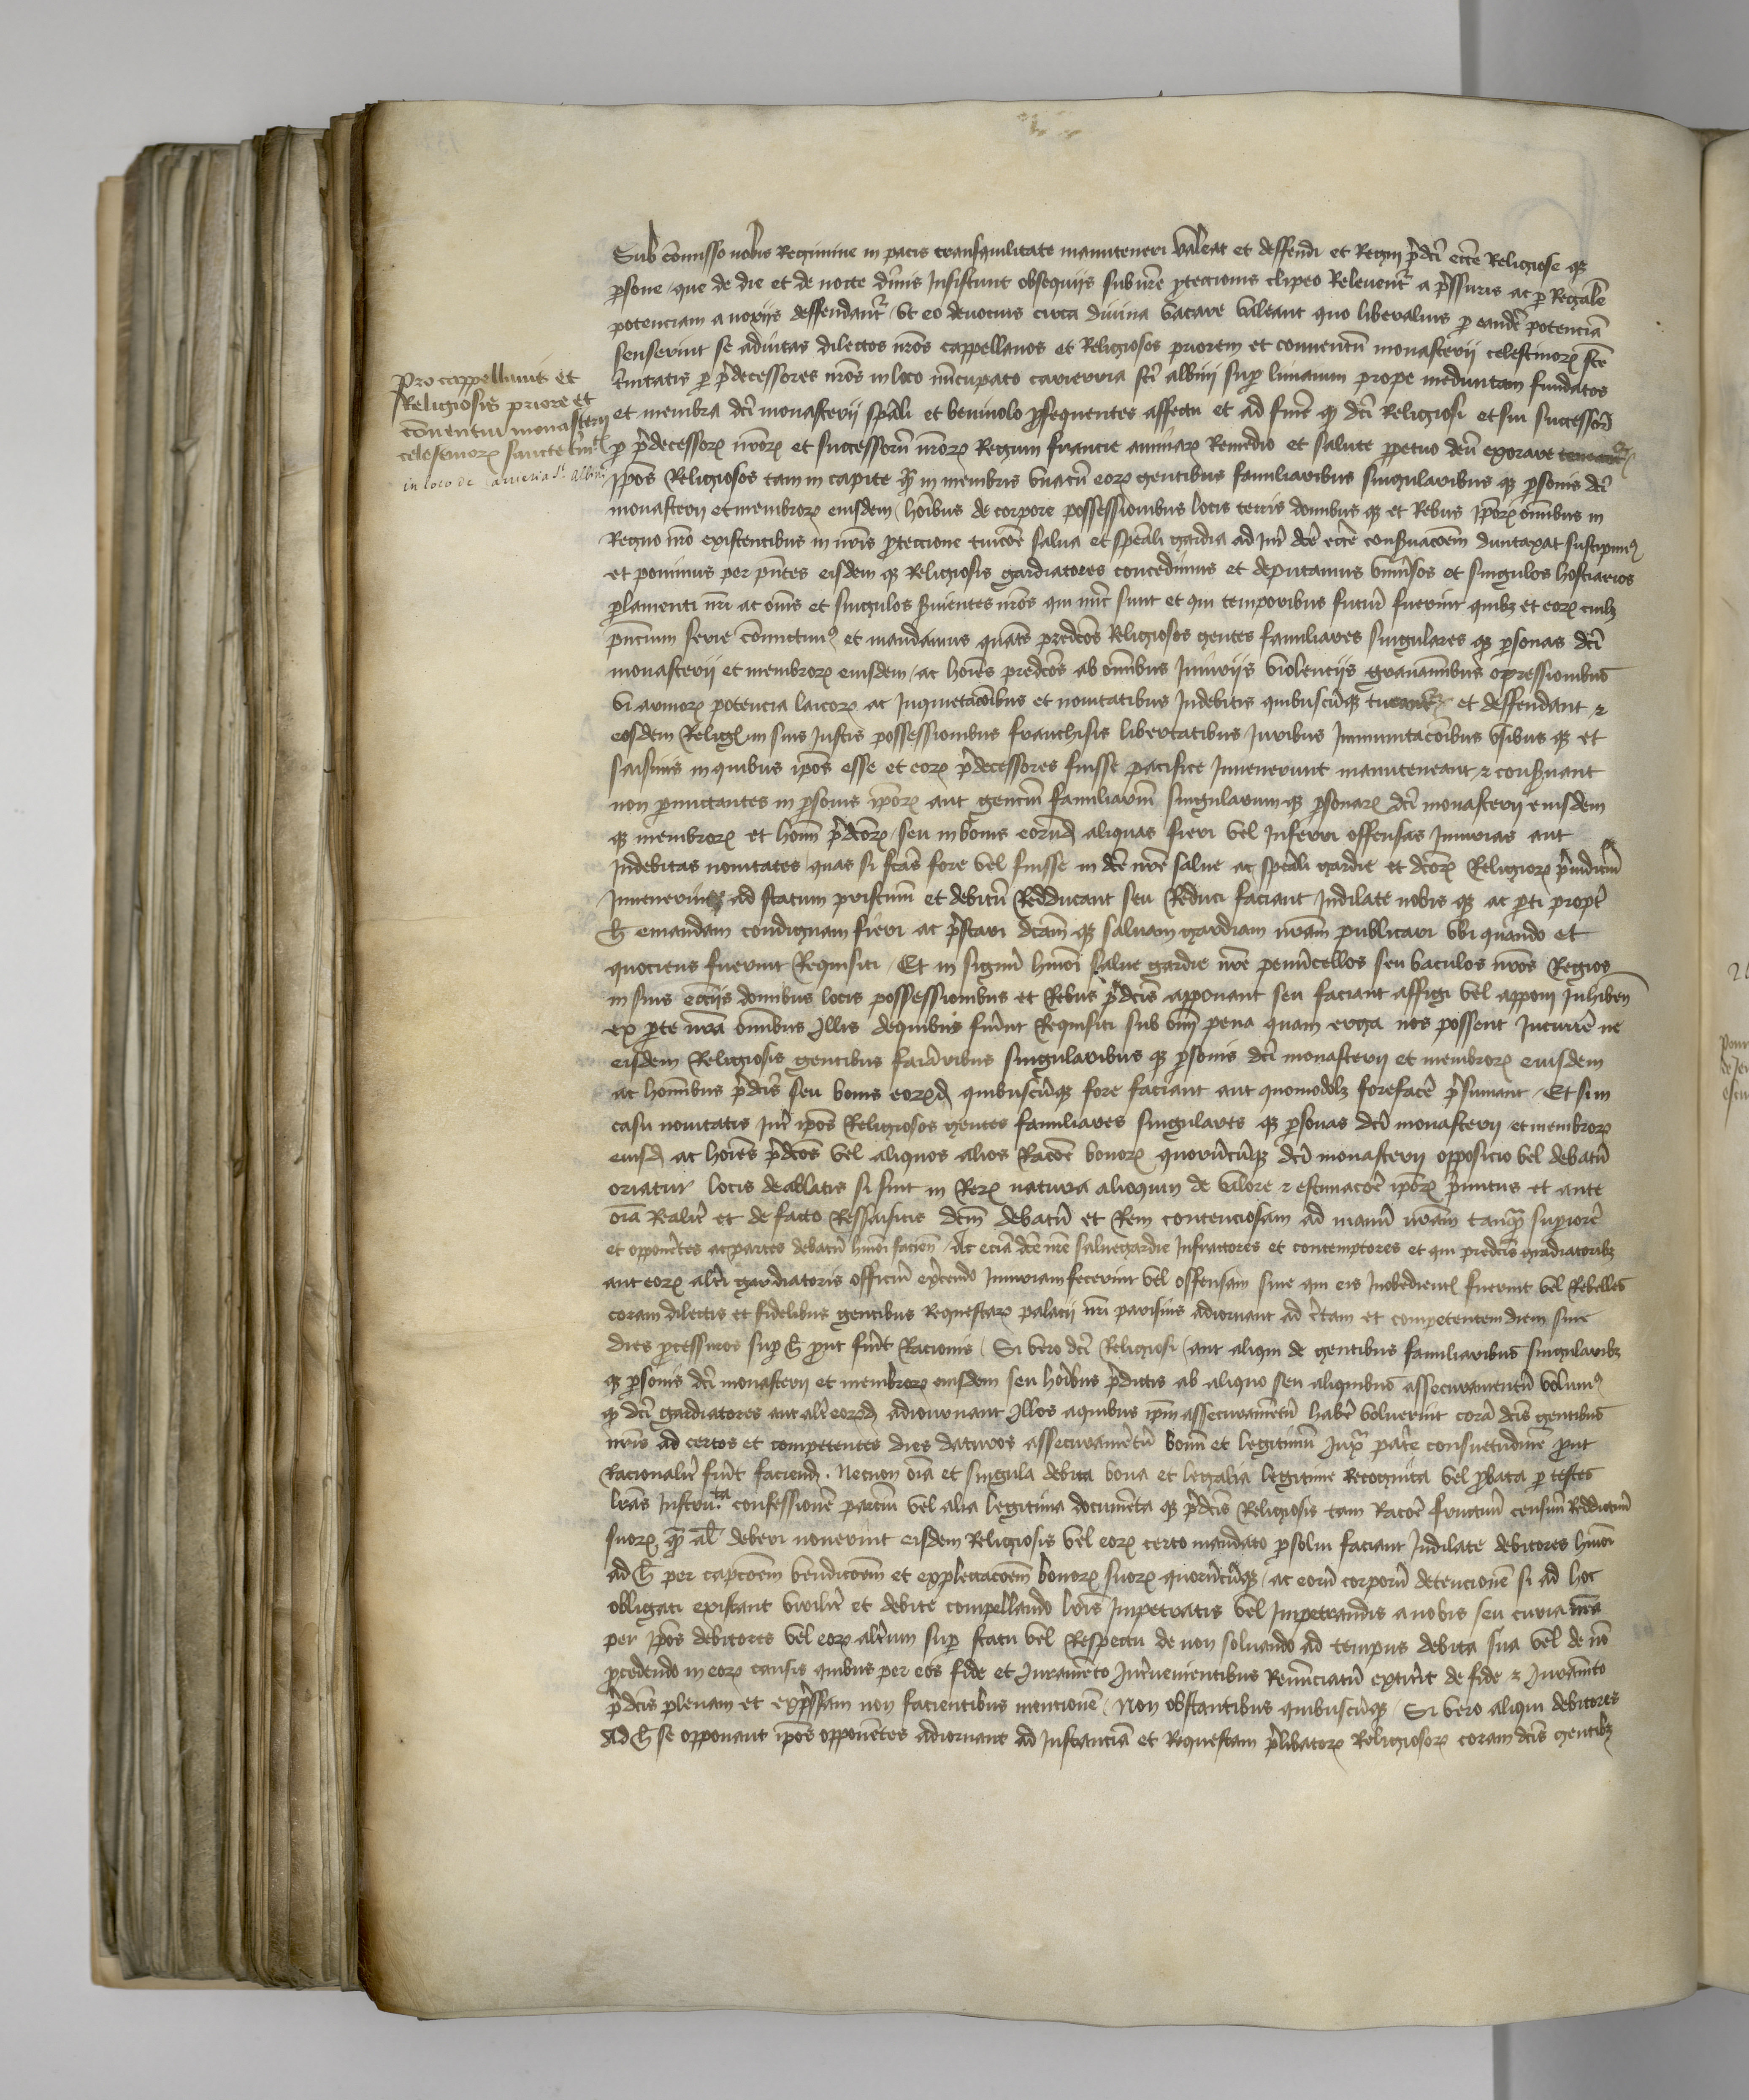 Pro cappellanis et
Religiosis priore et
cōuentui monasterij
celestinoꝝ sancte t̄nitꝭ
in loco de carrieria Sti Albini
Sub cōmisso nobis Regimine in pacis transquilitate manuteneri valeat et deffendi et Regnj p̄dc̄i ecc̄e Religiose qꝫ
ꝑsone que de die et de nocte diuīs Insistunt obsequijs sub nr̄e ꝓteccionis clipeo Releuent᷑ a p̄ssuris ac ꝑ Regalē
potenciam a noxijs deffendant᷑ vt eo deuocius circa diuina vacare valeant quo liberalius ꝑ eandē potenciā
senserint se adiutas dilectos nr̄os cappellanos et Religiosos priorem et conuentū monasterij celestinoꝝ sc̄e
t̄nitatis ꝑ p̄decessores nr̄os in loco nūcupato carierria sc̄i albini suꝑ limaium prope meduntam fundatos
et membra dc̄i monasterij sp̄ali et beniuolo ꝓsequentes affectu et ad finē qꝫ dc̄i Religiosi et sui successoꝝ
ꝑ p̄decessoꝝ nr̄oꝝ et successorū nr̄oꝝ Regum francie animaꝝ Remedio et salute ꝑpetuo deū exorare
ip̄os Religiosos tam in capite qm̄ in membris vnacū eoꝝ gentibus familiaribus singularibus qꝫ ꝑsonis dc̄i
monasterij et membroꝝ eiusdem hoīibus de corpore possessionibus locis terris domibus qꝫ et Rebus ip̄oꝝ om̄ibus in
Regno nr̄o existentibus in nr̄is ꝓteccione tuicōe salua et sp̄eali gardia ad Iur̄ dc̄e ecc̄e cons̄uacōem duntaxat suscipimꝰ
et ponimus per pn̄tes eisdem qꝫ Religiosis gardiatores concedimus et deputamus vniūsos et singulos hostiarios
ꝑlamenti nr̄i ac om̄s et singulos s̄uientes nr̄os qui nūc sunt et qui temporibus futur̄ fuerint quibꝫ et eoꝝ cuilꝫ
pn̄cium serie cōmictimꝰ et mandamus quatꝰ predcōs Religiosos gentes familiares singulares qꝫ ꝑsonas dc̄i
monasterij et membroꝝ eiusdem ac hoīes predcōs ab om̄ibus Iniurijs violencijs grauaminibus opressionibus
vi armoꝝ potencia laicoꝝ ac Inquietacōibus et nouitatibus Indebitis quibuscūqꝫ et deffendant ⁊
eosdem Religꝭ in suis Iustis possessionibus franchisis libertatibus Iuribus Inmunitacōibus vsibus qꝫ et
saisinis in quibus ip̄os esse et eoꝝ p̄decessores fuisse pacifice Inuenerunt manuteneant ⁊ cons̄uant
non ꝑmictantes in ꝑsonis ip̄oꝝ aut genciū familiariū singularium qꝫ ꝑsonaꝝ dc̄i monasterij eiusdem
qꝫ membroꝝ et hoīm p̄dcōꝝ seu in bonis eorund̄ aliquas fieri vel Inferri offensas Iniurias aut
Indebitas nouitates quas si fc̄as fore vel fuisse in dc̄e nr̄e salue ac sp̄eali gardie et dc̄oꝝ Religioꝝ p̄iudiciū
Inuenerint ad statum pristinū et debitū Redducant seu Reduci faciant Indilate nobis qꝫ ac ꝑti propt̄
h̄ emandam condignam fieri ac p̄stari dc̄am qꝫ saluam gardiam nr̄am publicari vbi quando et
quociens fuerint Requisiti Et in signū hmōi salue gardie nr̄e penūcellos seu baculos nr̄os Regios
in suis ecc̄ijs domibus locis possessionibus et Rebus p̄dcīs apponant seu faciant affigi vel apponj Inhibeñ
ex ꝑte nr̄a om̄ibus Illis de quibus fuer̄int Requisiti sub om̄i pena quam erga nos possent Incurrē ne
eisdem Religiosis gentibus fam̄iaribus singularibus qꝫ ꝑsonis dc̄i monasterij et membroꝝ eiusdem
ac hominibus p̄dcīs seu bonis eoꝝd̄ quibuscūqꝫ fore faciant aut quomodolꝫ forefacē p̄sumant Et si in
casu nouitatis Int̄ ip̄os Religiosos gentes familiares singulares qꝫ ꝑsonas dc̄i monasterij et membroꝝ
eiusd̄ ac hoīes p̄dcōs vel aliquos alios Racōe bonoꝝ quorūcūqꝫ dc̄i monasterij opposicio vel debatū
oriatur locis de ablatis si sint in Reꝝ natura alioquin de valore ⁊ estimacōe ip̄oꝝ p̄mitus et ante
oīa Realit̄ et de facto Ressaisitis dc̄m debatū et Rem contenciosam ad manū nr̄am tanqm̄ suꝑiorē
et opponētes ac partes debatū hmōi facieñ Ac eciā dc̄e nr̄e saluegardie Infractores et contemptores et qui predcīs gardiatoribꝫ
aut eoꝝ alt̄i gardiatoris officiū ex̄cendo Iniuriam fecerint vel offensam siue qui eis Inobedientꝭ fuerint vel Rebelles
coram dilectis et fidelibus gentibus Requestaꝝ palacij nr̄i parisius adiornant ad c̄tam et competentem diem siue
dies ꝓcessuros suꝑ h̄ ꝓut fuer̄it Racionis Si vero dc̄i Religiosi aut aliqui de gentibus familiaribus singularibꝫ
qꝫ ꝑsonis dc̄i monasterij et membroꝝ eiusdem seu hoībus p̄dictis ab aliquo seu aliquibus assecuramentū volumꝰ
qꝫ dc̄i gardiatores aut alt̄ eoꝝd̄ adiournant Illos a quibus ip̄m assecuramētū habē voluerint corā dcīs gentibus
nr̄is ad certos et competentes dies daturos assecuramētū bonū et legitimū Iuxͣ patͥe consuetudinē ꝓut
Racionalit̄ fuer̄it faciend̄. Necnon oīa et singula debita bona et legalia legitime Recognita vel ꝓbata ꝑ testes
lr̄as Instruͭᵃ confessionē parciū vel alia legitima documēta qꝫ p̄dcīs Religiosis tam Racōe fructuū censuū Reddituū
suoꝝ qm̄ al̄ deberi nouerint eisdem Religiosis vel eoꝝ certo mandato ꝑsolui faciant Indilate debitores hmōi
ad h̄ per capcōem vendicōem et explectacōem bonoꝝ suoꝝ quorūcūqꝫ ac eorū corporū detencionē si ad hoc
obligati existant virilit̄ et debite compellando lr̄is Impetratis vel Impetrandis a nobis seu curia nr̄a
per ip̄os debitores vel eoꝝ alt̄um suꝑ statu vel Respectu de non soluando ad tempus debita sua vel de nō
ꝓcedendo in eoꝝ causis quibus per eos fide et Iuramēto Int̄uenientibus Renūciatū extit̄it de fide ⁊ Iuramēto
p̄dcīs plenam et exp̄ssam non facientibus mencionē Non obstantibus quibuscūqꝫ Si vero aliqui debitores
Ad h̄ se opponant ip̄os opponētes adiornant ad Instanciā et Requestam p̄libatoꝝ Religiosoꝝ coram dcīs gentibꝫ